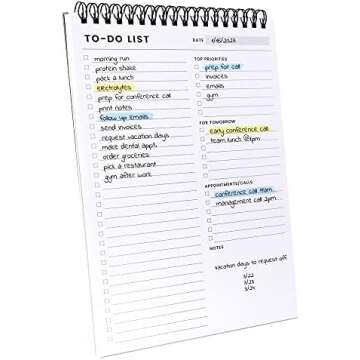 TO-DO LIST
DATE
morning run
protein shake
pack a lunch
electrolytes
prep for conference call
print notes
follow up emails
send invoices
request vacation days
make dental appt.
order groceries
pick a restaurant
gym after work
TOP PRIORITIES
prep for call
invoices
emails
gym
FOR TOMORROW
early conference call
team lunch @1pm
APPOINTMENTS/CALLS
conference call 11am
management call 2pm
NOTES
vacation days to request off
3/22
3/23
3/24